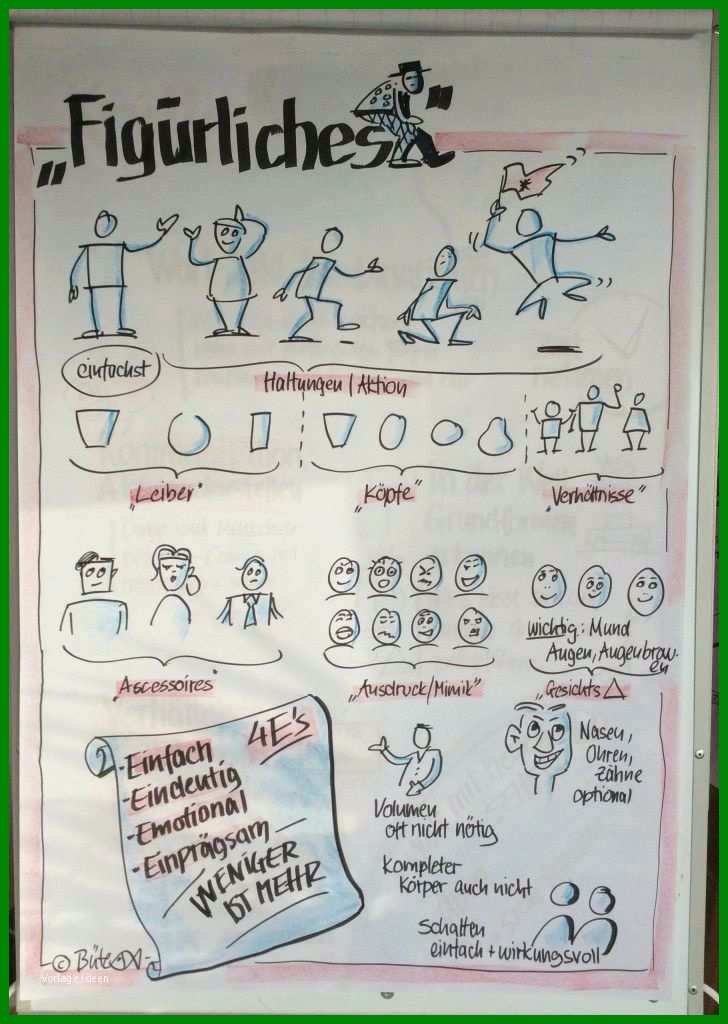 „Figürliches"
einfachst
Haltungen/Aktion
„Leiber"
„Köpfe"
„Verhältnisse"
wichtig: Mund
Augen, Augenbrau-
en
„Ascessoires"
„Ausdruck/Mimik"
„Gesichts △
4E's
- Einfach
- Eindeutig
- Emotional
- Einprägsam
WENIGER
IST MEHR
Nasen,
Ohren,
Zähne
optional
Volumen
oft nicht nötig
kompleter
körper auch nicht
Schatten
einfach + wirkungsvoll
©
Vorlage Ideen